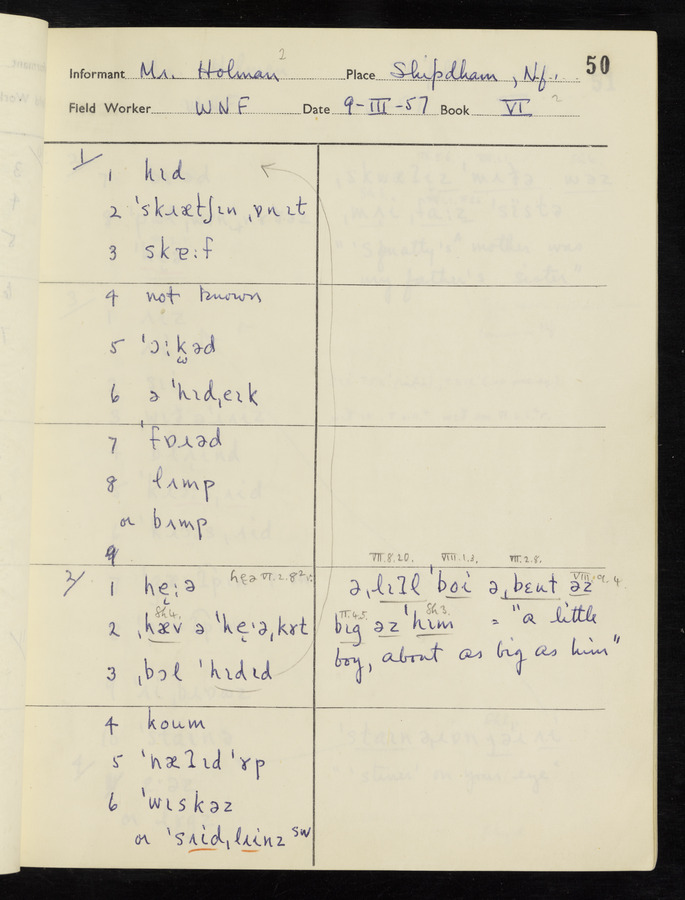 Informant Mr. Holman 2 Place Shipdham, Nf. 50
Field Worker WNF Date 9-III-57 Book VI 2
1/ 1 hɪd
2 ˈskɹætʃɪn ˌɒnɪt
3 skæːf
4 not known
5 ˈɔːk̫əd
6 ə ˈhɪdˌeɪk
7 ˈfɒɹəd
8 lɪmp
or bɪmp
9
2/ 1 hę:ə hęə VI.2.8
2 ˌhæv ə ˈhęˑəˌkɤt
Sh4.
3 ˌbɔl ˈhɪdɪd
4 koum
5 ˈnæʔɪd ˈɤp
6 ˈwɪskəz
or ˈsɹidˌlɪinz SW
VII.8.20. VIII.1.3. VII.2.8.
ə ˌlɪʔl ˈboi ə ˌbɛut əz
VIII.9.4
II.4.5. Sh3.
bɪg əz ˈhɪm = "a little
boy, about as big as him"